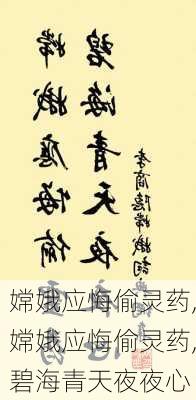 嫦娥應悔偷
碧海青天夜
李商隱嫦娥詞
嫦娥应悔偷灵药,
嫦娥应悔偷灵药,
碧海青天夜夜心